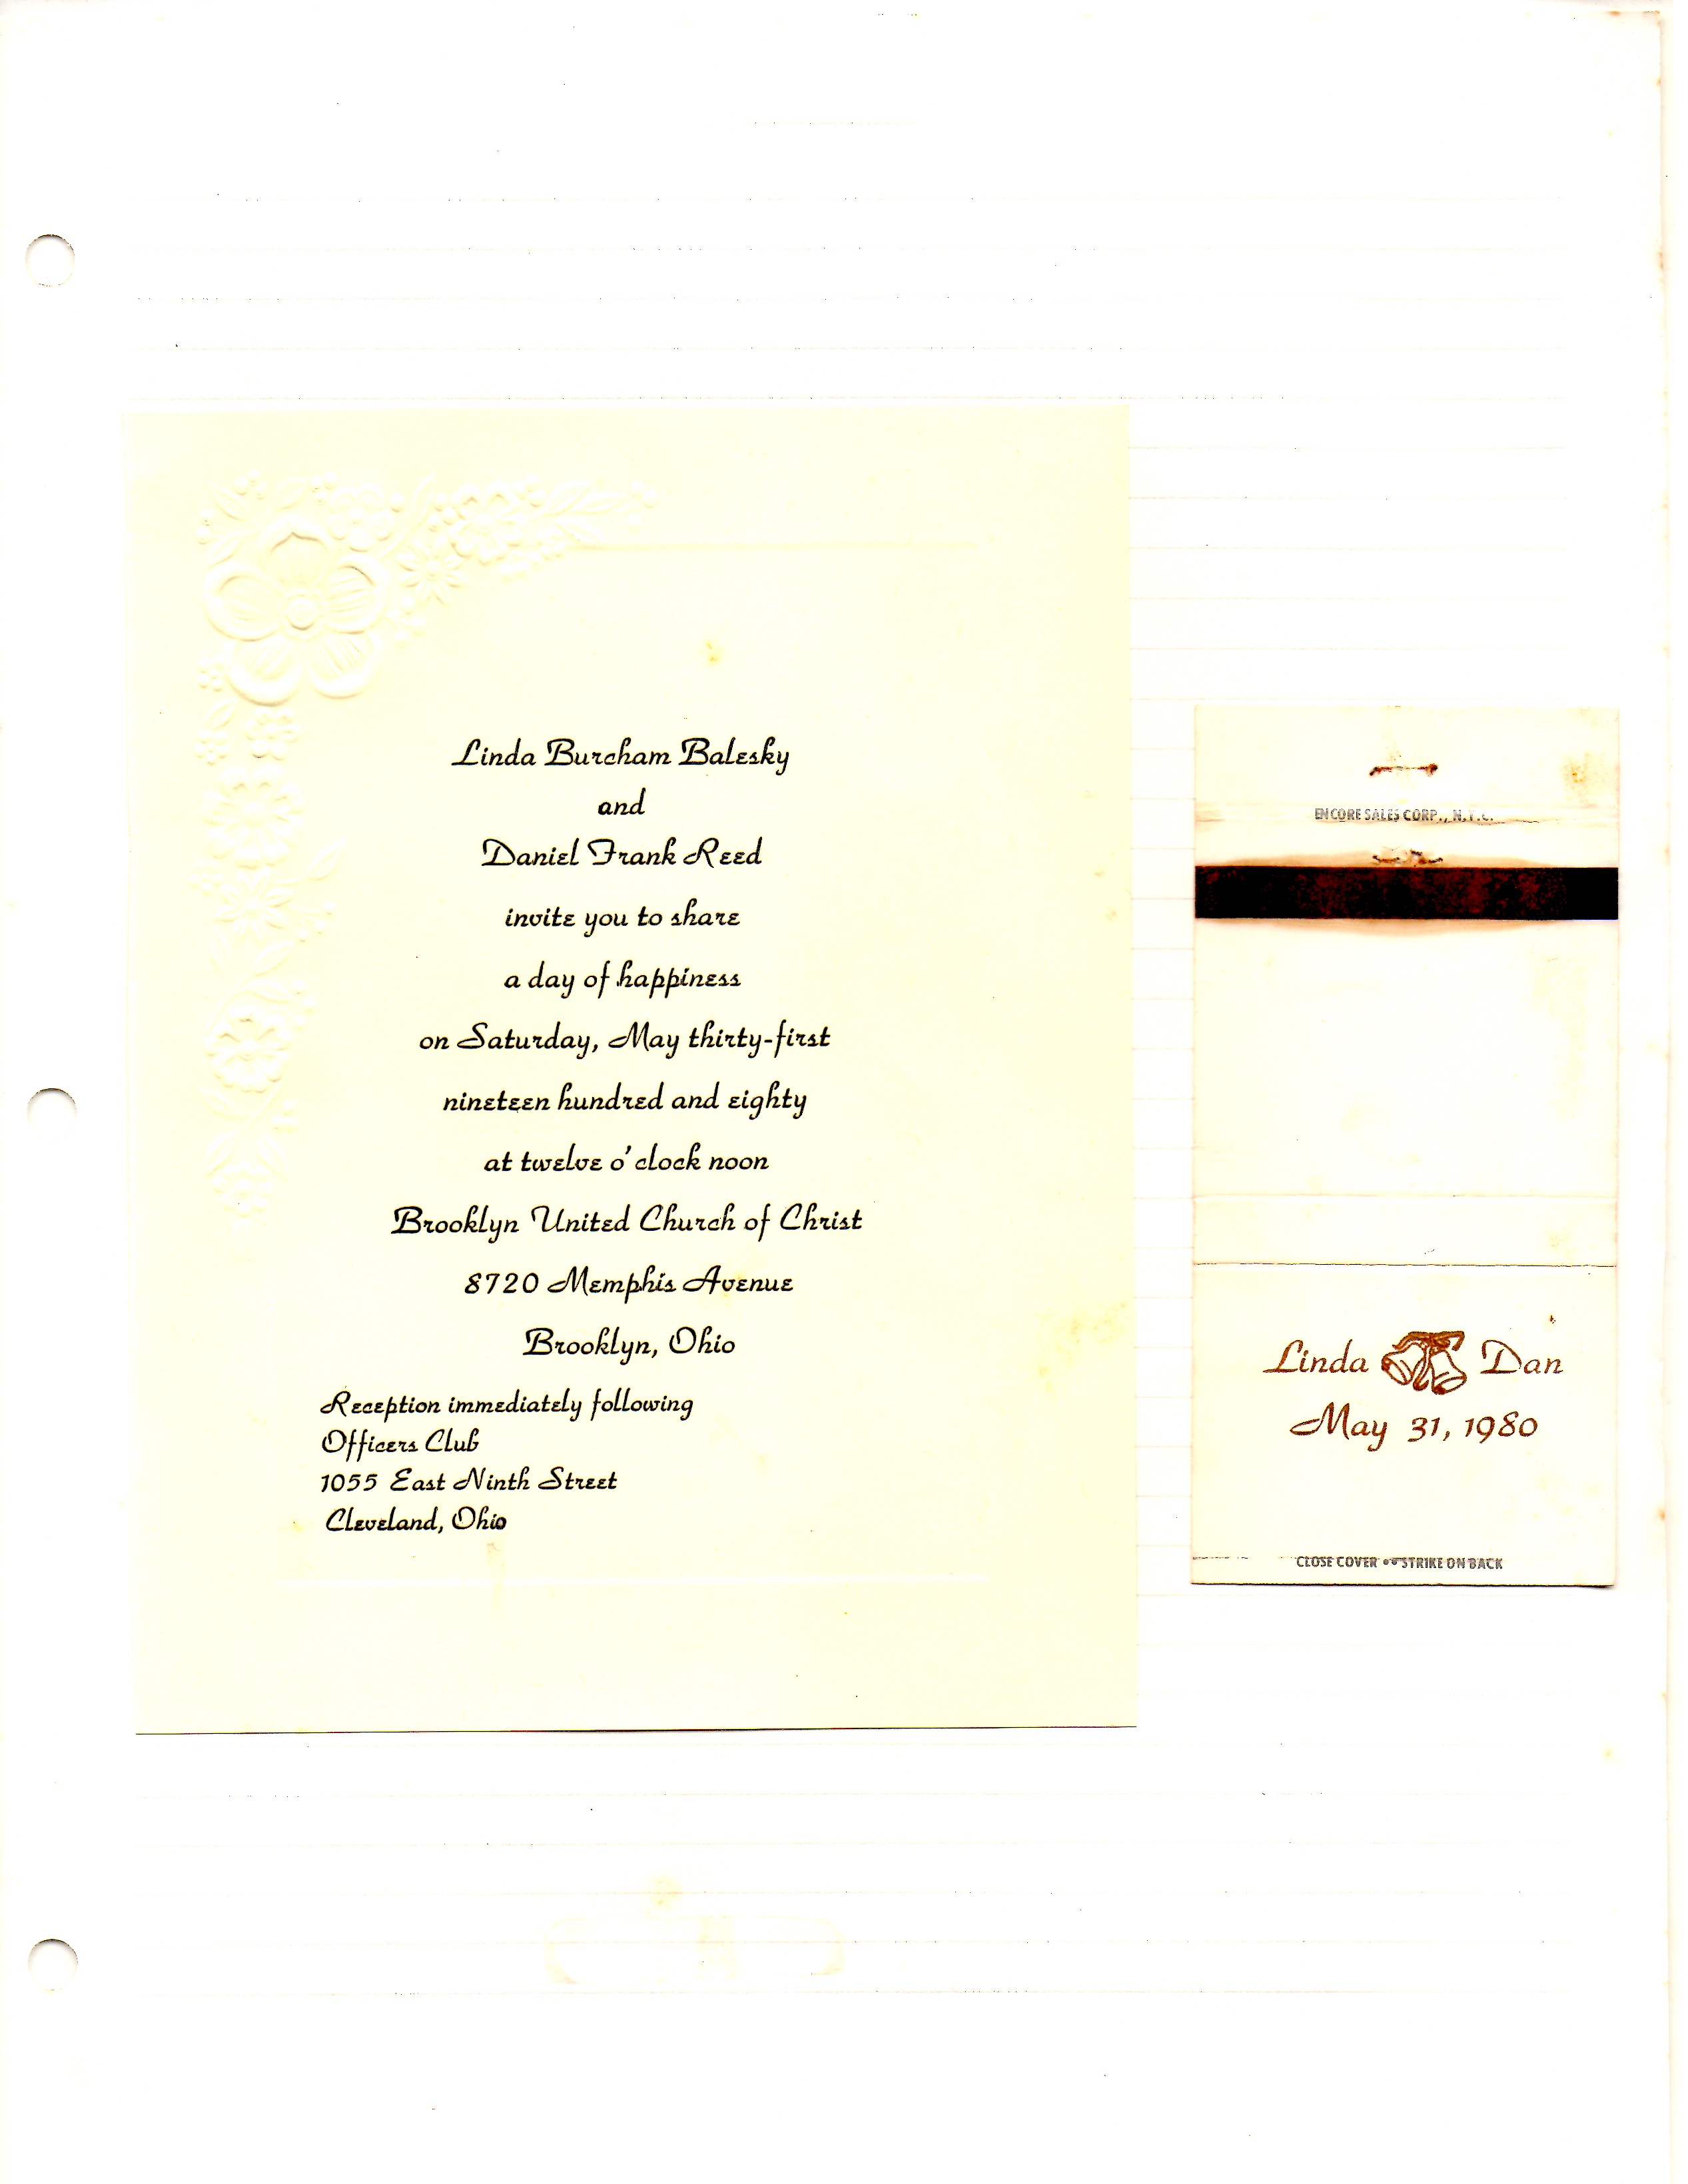 Linda Burcham Balesky
and
Daniel Frank Reed
invite you to share
a day of happiness
on Saturday, May thirty-first
nineteen hundred and eighty
at twelve o'clock noon
Brooklyn United Church of Christ
8720 Memphis Avenue
Brooklyn, Ohio
Reception immediately following
Officers Club
1055 East Ninth Street
Cleveland, Ohio
ENCORE SALES CORP., N.Y.C.
Linda Dan
May 31, 1980
CLOSE COVER • STRIKE ON BACK